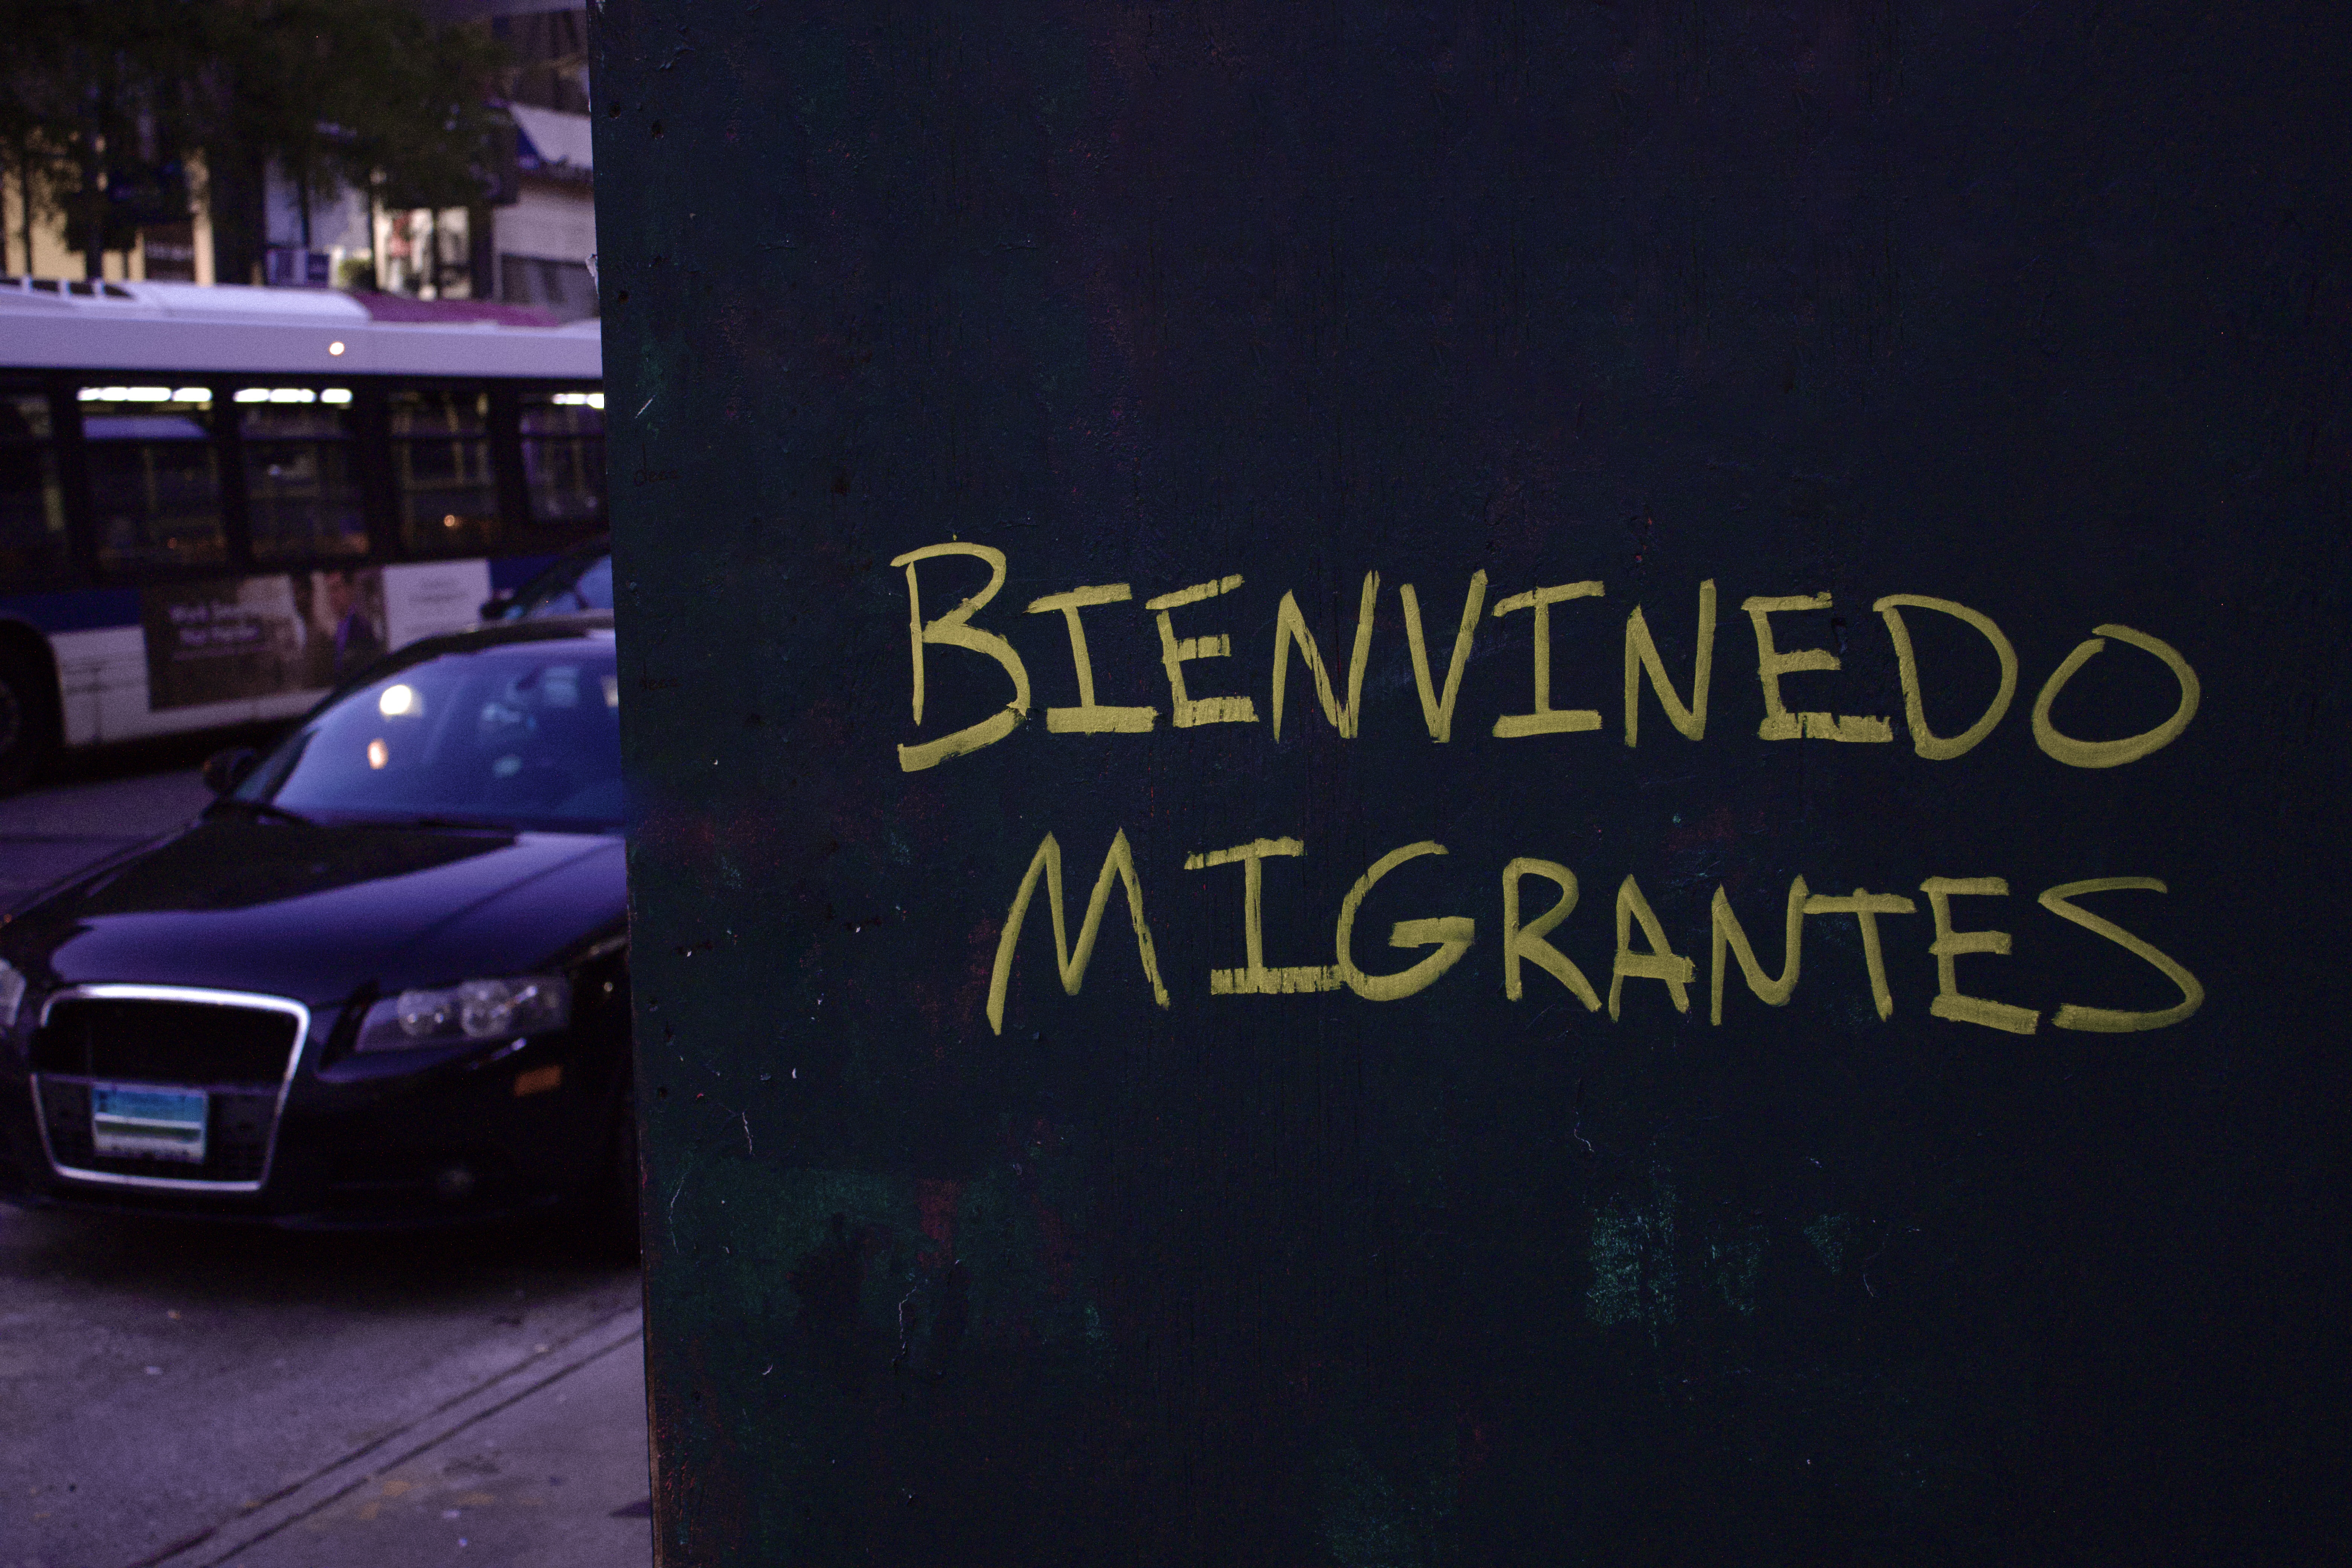 BIENVINEDO
MIGRANTES